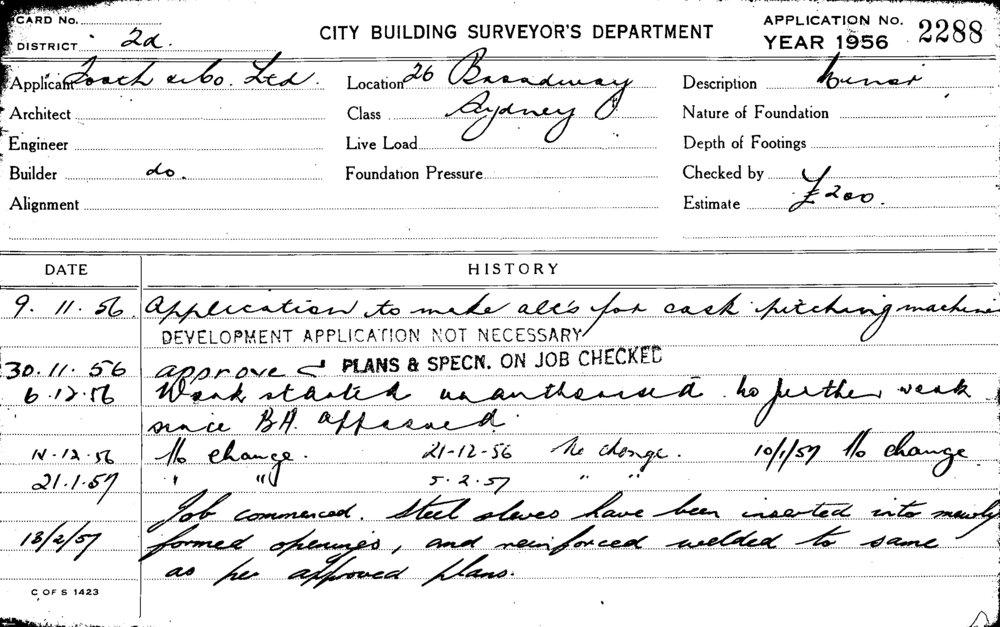 CARD No.
DISTRICT 2d.
CITY BUILDING SURVEYOR'S DEPARTMENT
APPLICATION No. 2288
YEAR 1956
Applicant Tooth & Co. Ltd.
Location 26 Broadway
Description Minor
Architect
Class Sydney
Nature of Foundation
Engineer
Live Load
Depth of Footings
Builder do.
Foundation Pressure
Checked by
Alignment
Estimate £200.
DATE HISTORY
9. 11. 56. Application to make alt's for cask pitching machine
DEVELOPMENT APPLICATION NOT NECESSARY
30. 11. 56 approve PLANS & SPECN. ON JOB CHECKED
6. 12. 56 Work started unauthorised. No further work
since BA. approved.
12. 56 No change. 21-12-56 No change. 10/1/57 No change
21.1.57 " " 5. 2. 57 " "
Job commenced. Steel sleves have been inserted into newly
13/2/57 formed openings, and reinforced welded to same
as per approved plans.
C OF S 1423